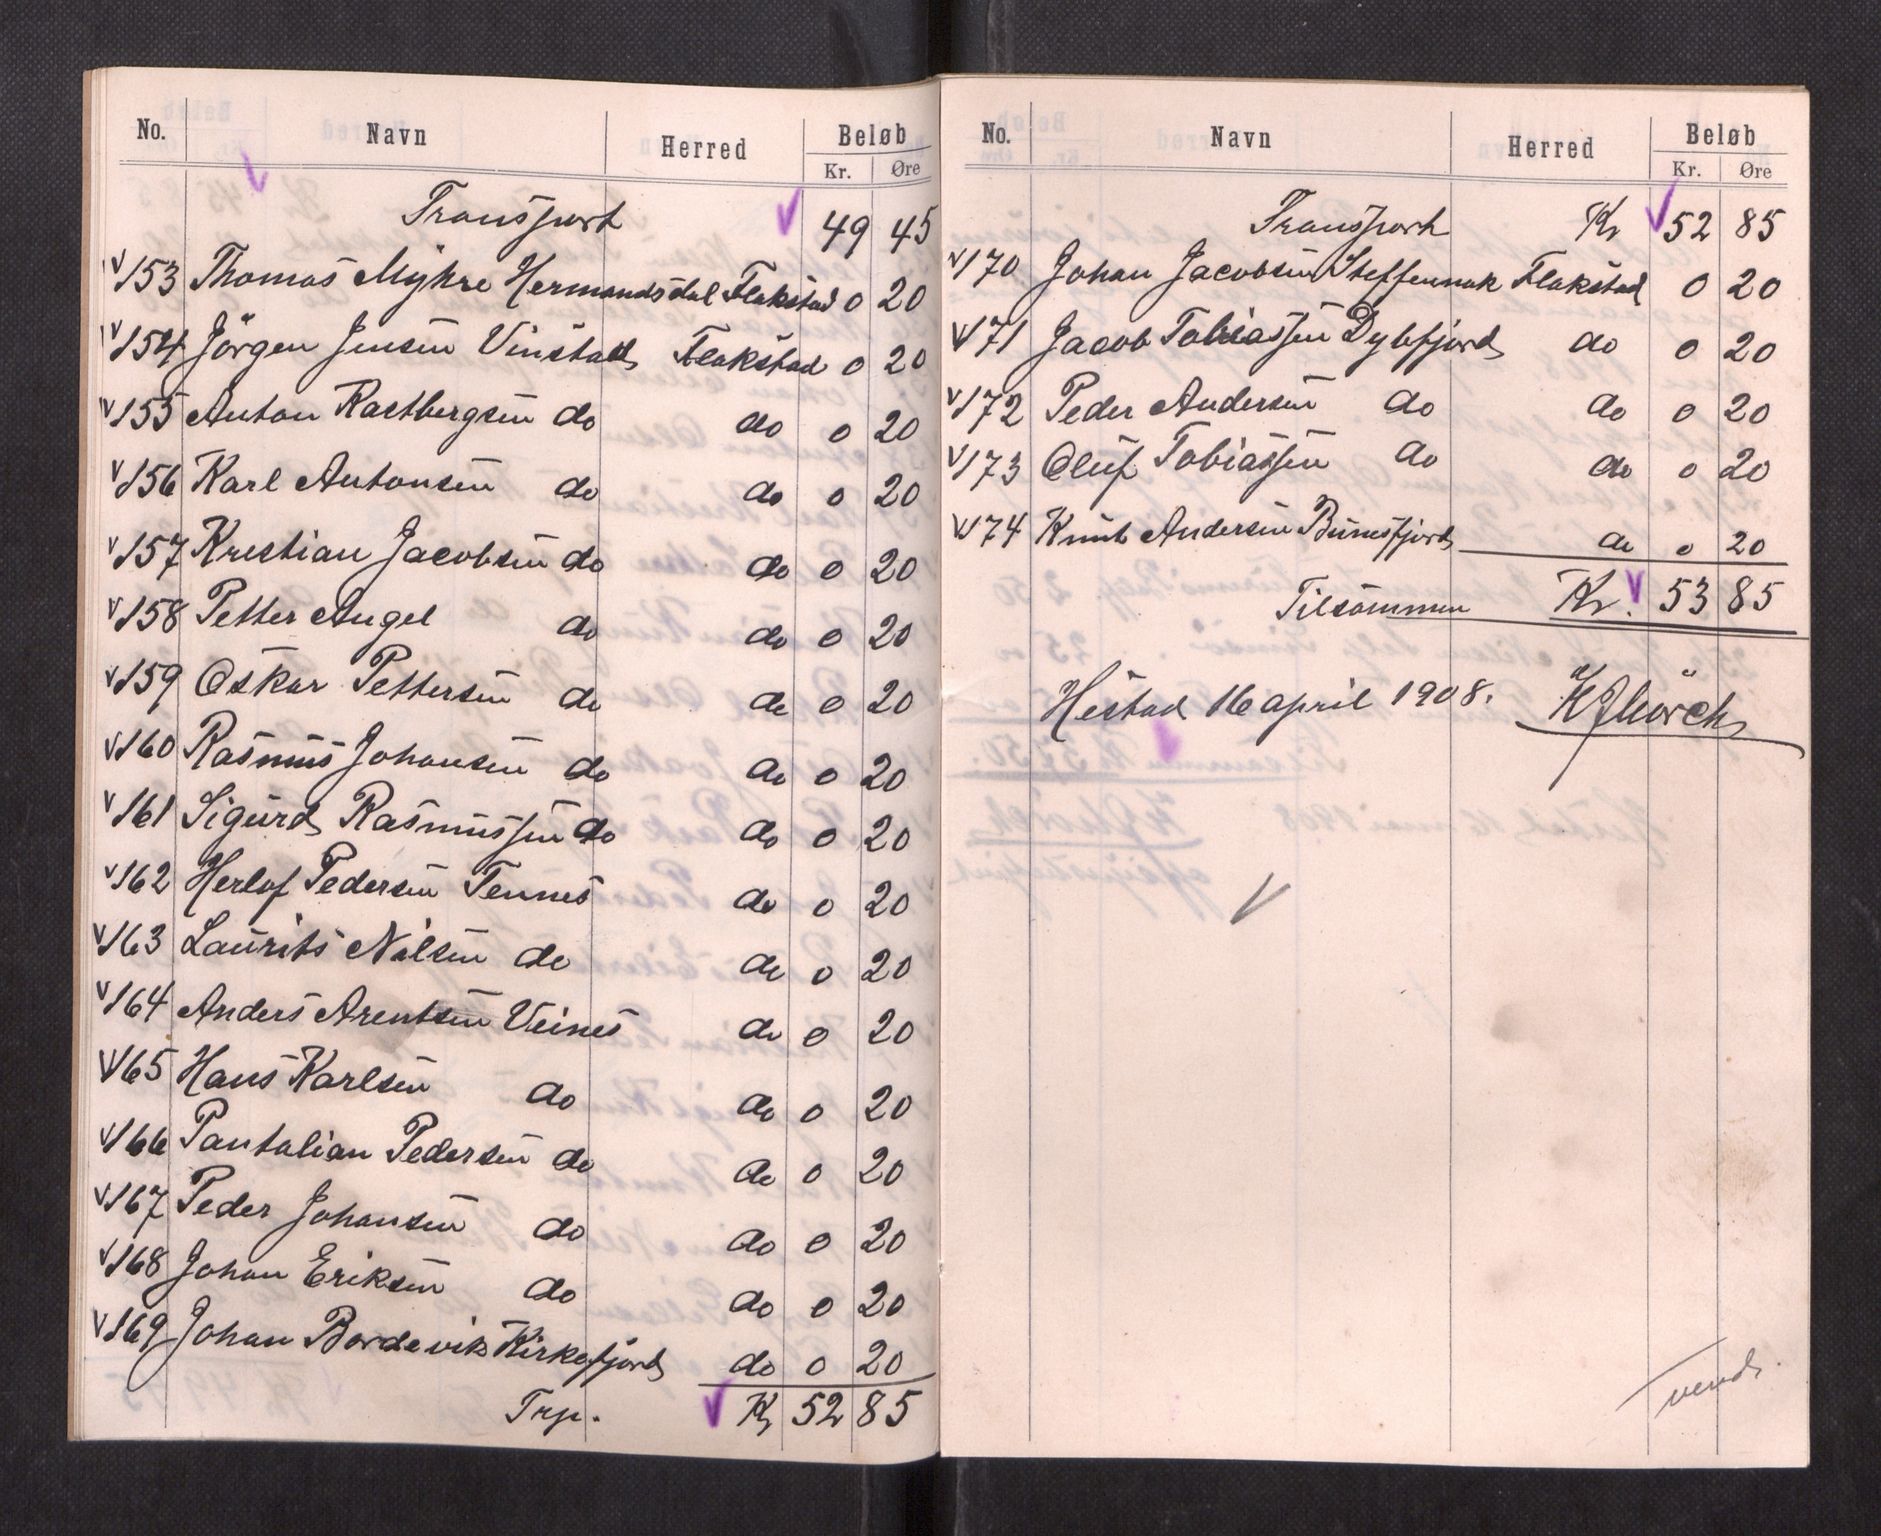 No. Navn Herred Beløb
Kr. Øre
Transport 49 45
153 Thomas Myhre Hermandsdal Flakstad 0 20
154 Jörgen Jensen Vinstad Flakstad 0 20
155 Anton Rastbergsen do do 0 20
156 Karl Antonsen do do 0 20
157 Krestian Jacobsen do do 0 20
158 Petter Angel do do 0 20
159 Oskar Pettersen do do 0 20
160 Rasmus Johansen do do 0 20
161 Sigurd Rasmussen do do 0 20
162 Herlof Pedersen Tennes do 0 20
163 Laurits Nilsen do do 0 20
164 Anders Arentsen Veines do 0 20
165 Hans Karlsen do do 0 20
166 Pantalian Pedersen do do 0 20
167 Peder Johansen do do 0 20
168 Johan Eriksen do do 0 20
169 Johan Bordevik Kirkefjord do 0 20
Trp. Kr 52 85
No. Navn Herred Beløb
Kr. Øre
Transport Kr 52 85
170 Johan Jacobsen Steffennak Flakstad 0 20
171 Jacob Tobiassen Dybfjord do 0 20
172 Peder Andersen do do 0 20
173 Oluf Tobiassen do do 0 20
174 Knut Andersen Bunesfjord do 0 20
Tilsammen Kr. 53 85
Hestad 16 april 1908.
vend.